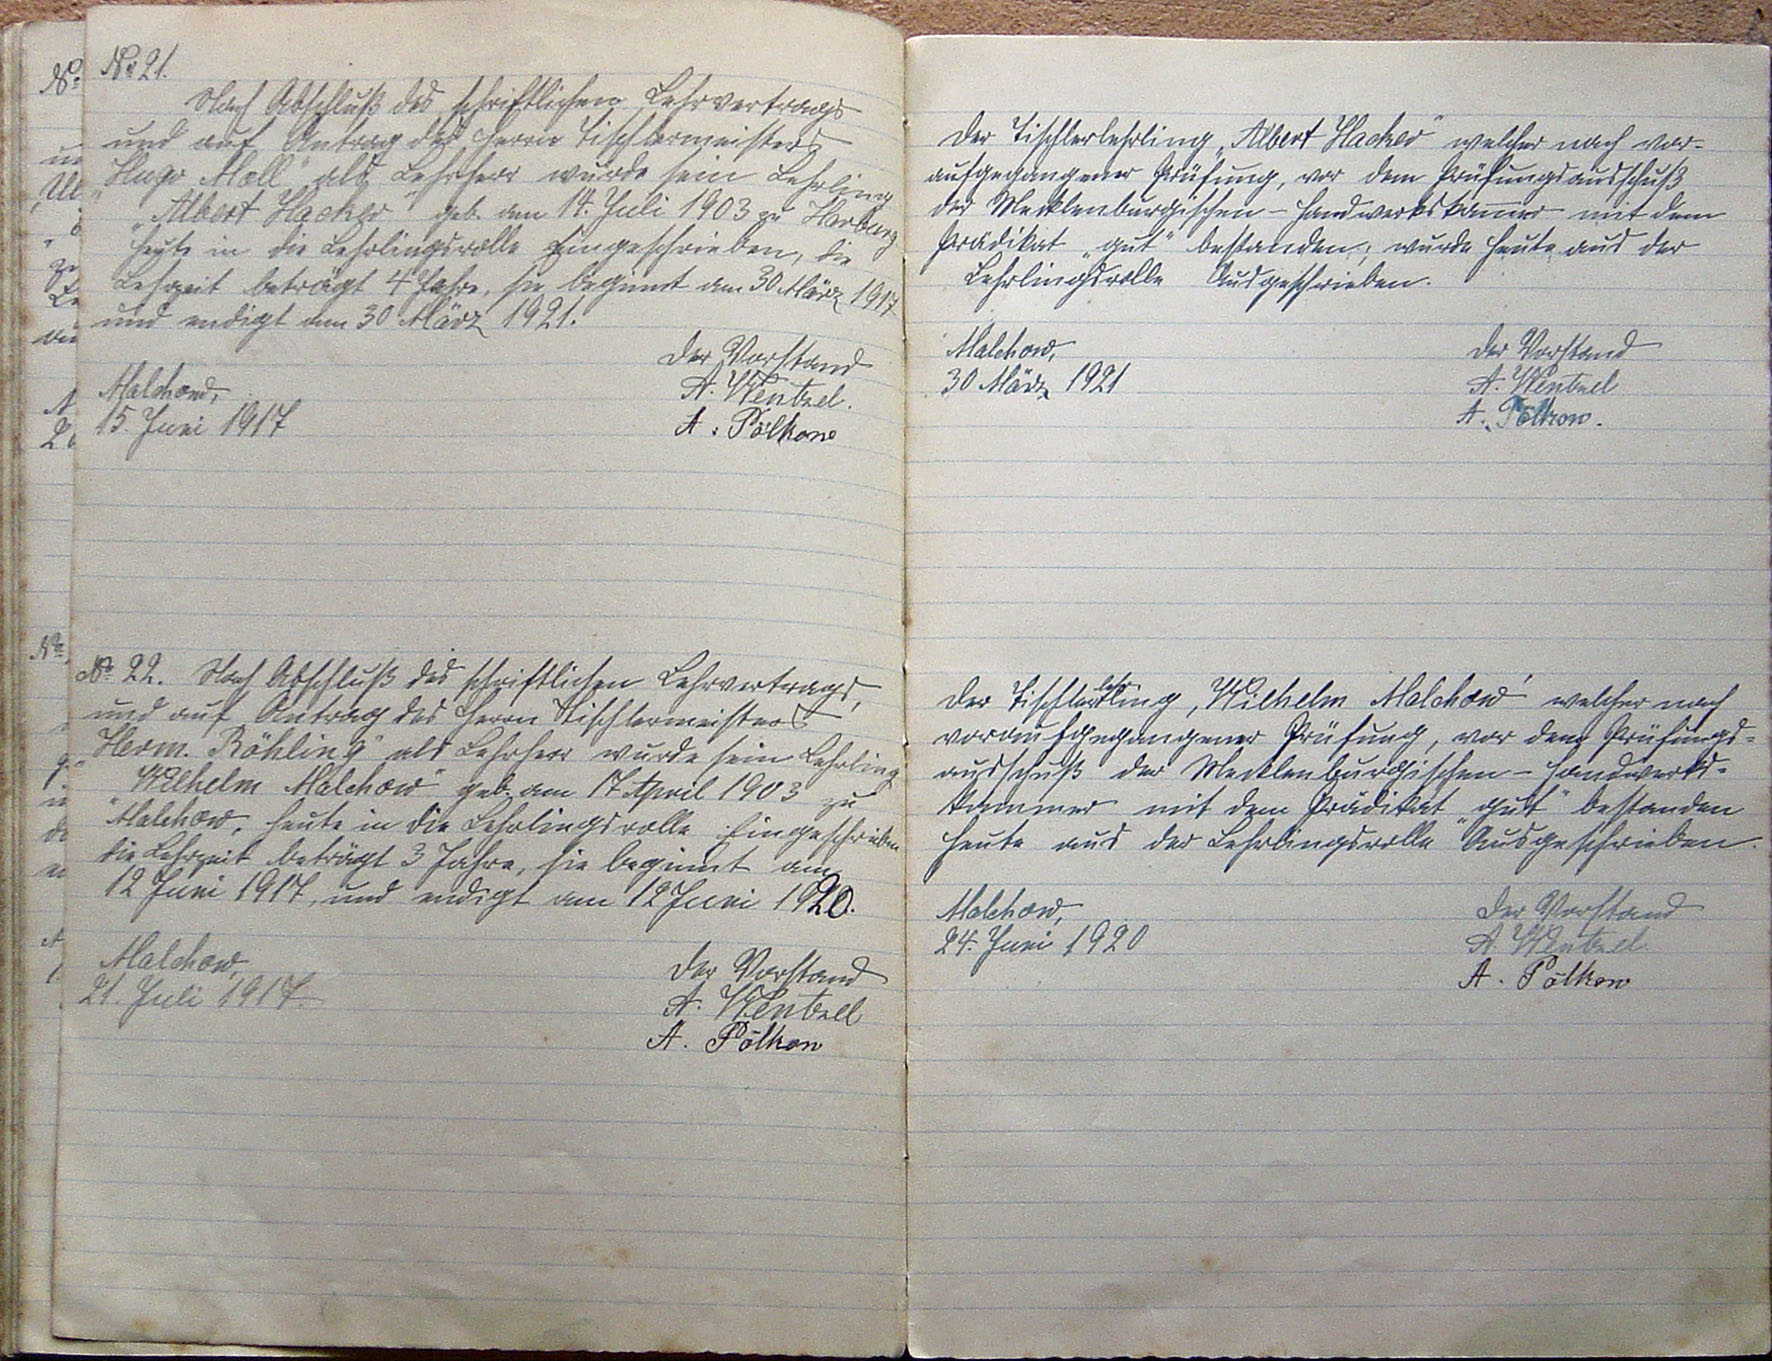 No 21.
Nach Abschluß des schriftlichen Lehrvertrags
und auf Antrag des Herrn Tischlermeisters
"Hugo Moll" als Lehrherr wurde sein Lehrling
"Albert Hacker" geb. am 14. Juli 1903 zu Harburg
heute in die Lehrlingsrolle Eingeschrieben, die
Lehrzeit beträgt 4 Jahre, sie beginnt am 30 März 1917
und endigt am 30 März 1921.
Der Vorstand
Malchow, A. Wentzel.
15. Juni 1917 A. Pölkow
No 22. Nach Abschluß des schriftlichen Lehrvertrags,
und auf Antrag des Herrn Tischlermeisters
"Herm. Röhling" als Lehrherr wurde sein Lehrling
"Wilhelm Malchow" geb. am 17 April 1903 zu
Malchow, heute in die Lehrlingsrolle Eingeschrieben
die Lehrzeit beträgt 3 Jahre, sie beginnt am
12 Juni 1917, und endigt am 12 Juni 1920.
Malchow, Der Vorstand
21. Juli 1917. A. Wentzel
A. Pölkow
Der Tischlerlehrling "Albert Hacker" welcher nach vor-
aufgegangener Prüfung, vor dem Prüfungsausschuß
der Mecklenburgischen - Handwerkskammer mit dem
Prädikat "gut" bestanden, wurde heute aus der
Lehrlingsrolle Ausgeschrieben.
Malchow, Der Vorstand
30 März 1921 A. Wentzel
A. Pölkow.
Der Tischlerlehrling, "Wilhelm Malchow" welcher nach
voraufgegangener Prüfung, vor dem Prüfungs-
ausschuß der Mecklenburgischen - Handwerks-
kammer mit dem Prädikat "gut" bestanden
heute aus der Lehrlingsrolle Ausgeschrieben.
Malchow, Der Vorstand
24. Juni 1920 A. Wentzel
A. Pölkow